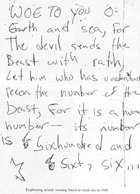 WOE TO YOU O-
Earth and sea, for
The devil sends the
Beast with rath,
Let him who has
recon the number of the
beast, For it is a human
number - its number
is 6 Sixhundred and
6 Sixty six